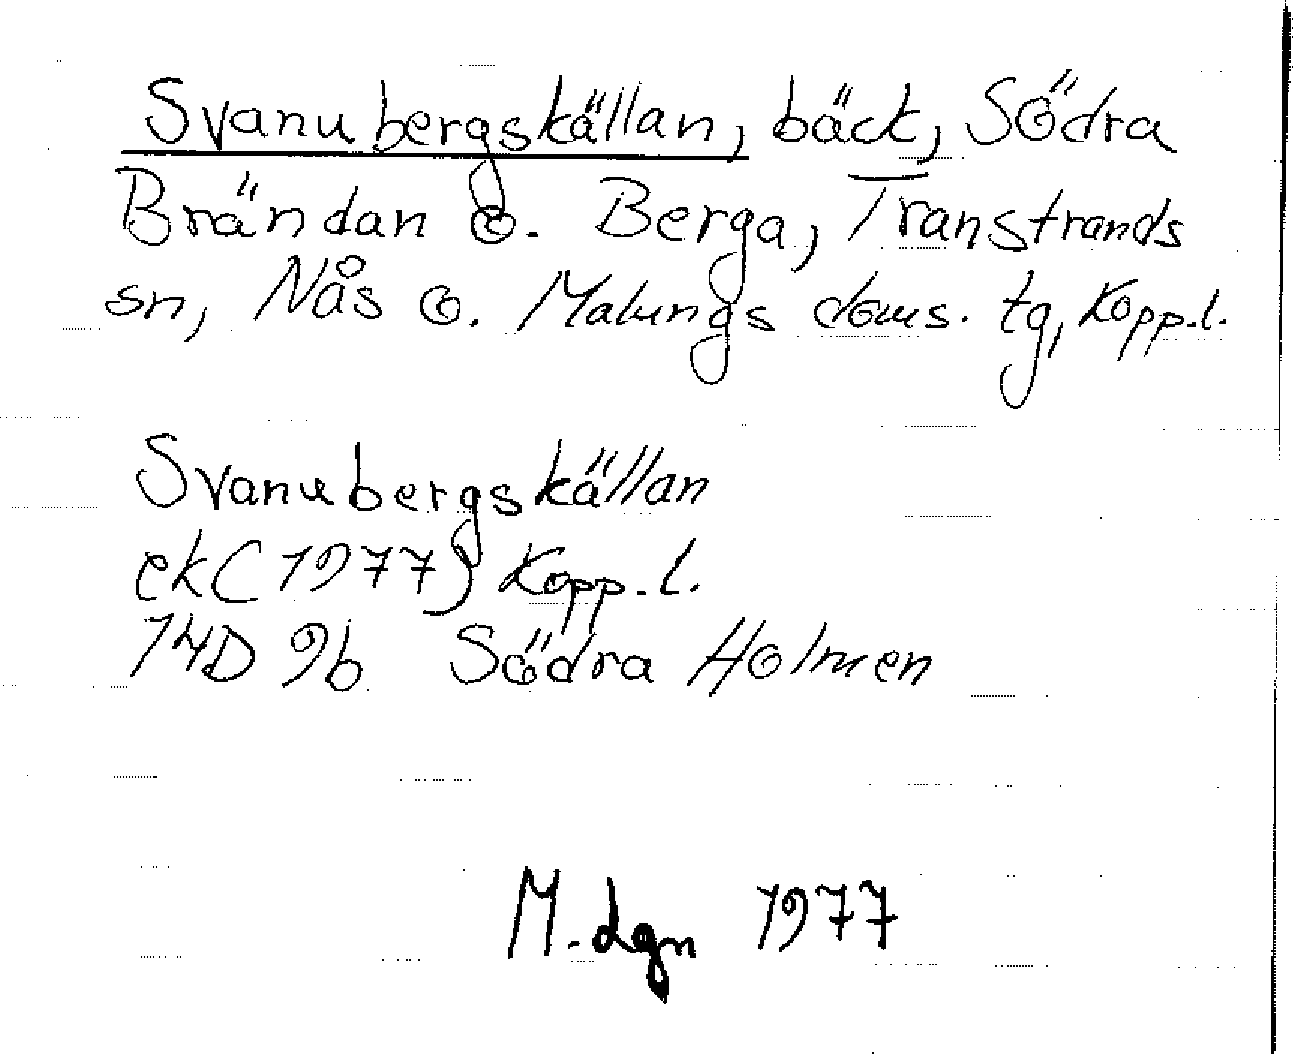 Svanubergskällan, bäck, Södra
Brändan o. Berga, Transtrands
sn, Nås o. Malungs doms. tg, Kopp.l.
Svanubergskällan
ek (1977) Kopp.l.
14D 9b Södra Holmen
M.dgn 1977